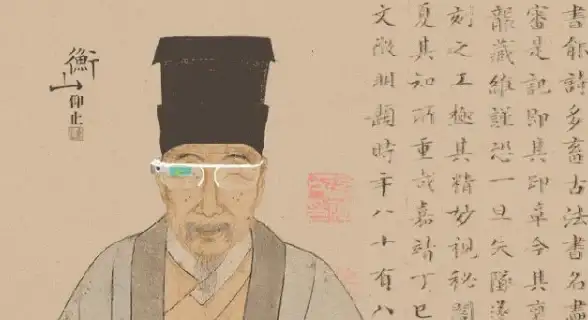 書能詩多蓄古法書名畫
審是記即其印章今其
龍藏維謹恐一旦失墜遂
刻之工極其精妙視秘閣
夏其知所重哉嘉靖丁巳
文徵明題時年八十有八
衡山
仰止